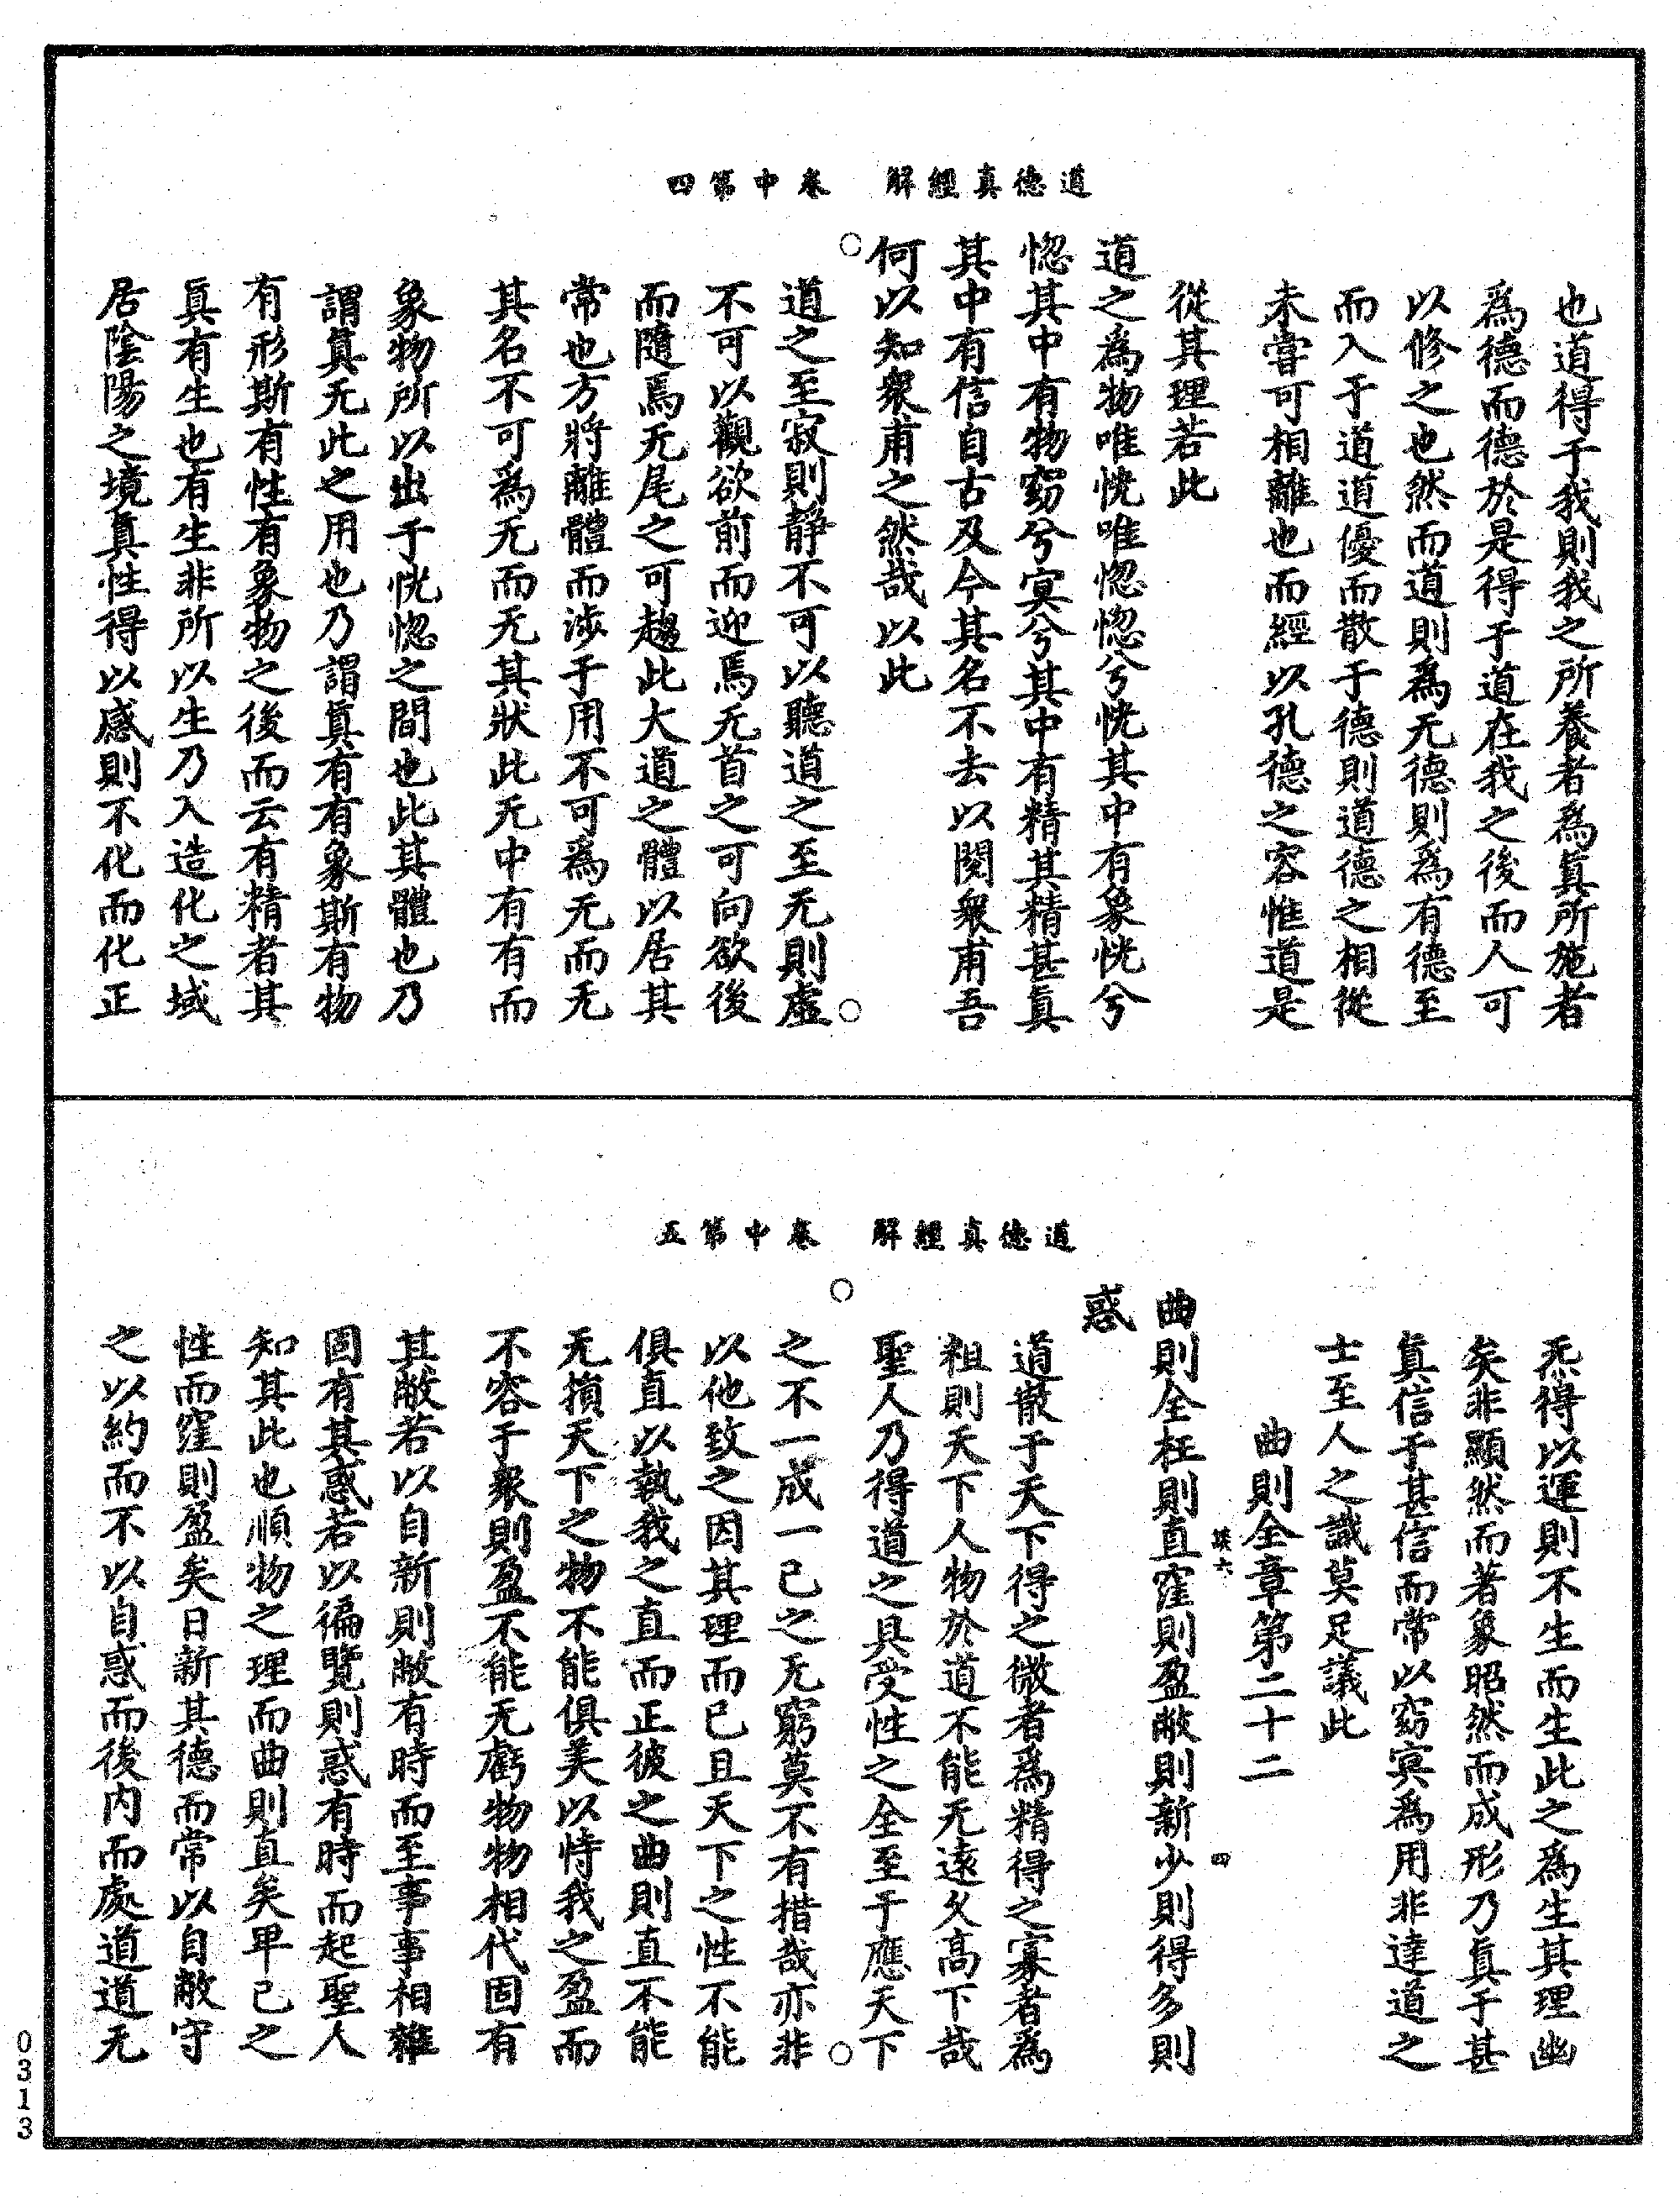 道德真經解　卷中第四
也道得于我則我之所養者爲眞所施者
爲德而德於是得于道在我之後而人可
以修之也然而道則爲无德則爲有德至
而入于道道優而散于德則道德之相從
未嘗可相離也而經以孔德之容惟道是
從其理若此
道之爲物唯恍唯惚惚兮恍其中有象恍兮
惚其中有物窈兮冥兮其中有精其精甚眞
其中有信自古及今其名不去以閱衆甫吾
何以知衆甫之然哉以此
道之至寂則靜不可以聽道之至无則虛
不可以觀欲前而迎焉无首之可向欲後
而隨焉无尾之可趨此大道之體以居其
常也方將離體而涉于用不可爲无而无
其名不可爲无而无其狀此无中有有而
象物所以出于恍惚之間也此其體也乃
謂眞无此之用也乃謂眞有有象斯有物
有形斯有性有象物之後而云有精者其
眞有生也有生非所以生乃入造化之域
居陰陽之境真性得以感則不化而化正
道德真經解　卷中第五
炁得以運則不生而生此之爲生其理幽
矣非顯然而著象昭然而成形乃眞于甚
眞信于甚信而常以窈冥爲用非達道之
士至人之識莫足議此
曲則全章第二十二
談六　四
曲則全枉則直窪則盈敝則新少則得多則
惑
道散于天下得之微者爲精得之寡者爲
粗則天下人物於道不能无遠夂高下哉
聖人乃得道之具受性之全至于應天下
之不一成一己之无窮莫不有措哉亦非
以他致之因其理而已且天下之性不能
俱直以執我之直而正彼之曲則直不能
无損天下之物不能俱美以恃我之盈而
不容于衆則盈不能无虧物物相代固有
其敝若以自新則敝有時而至事事相雜
固有其惑若以徧覽則惑有時而起聖人
知其此也順物之理而曲則直矣卑己之
性而窪則盈矣日新其德而常以自敝守
之以約而不以自惑而後内而處道道无
0313